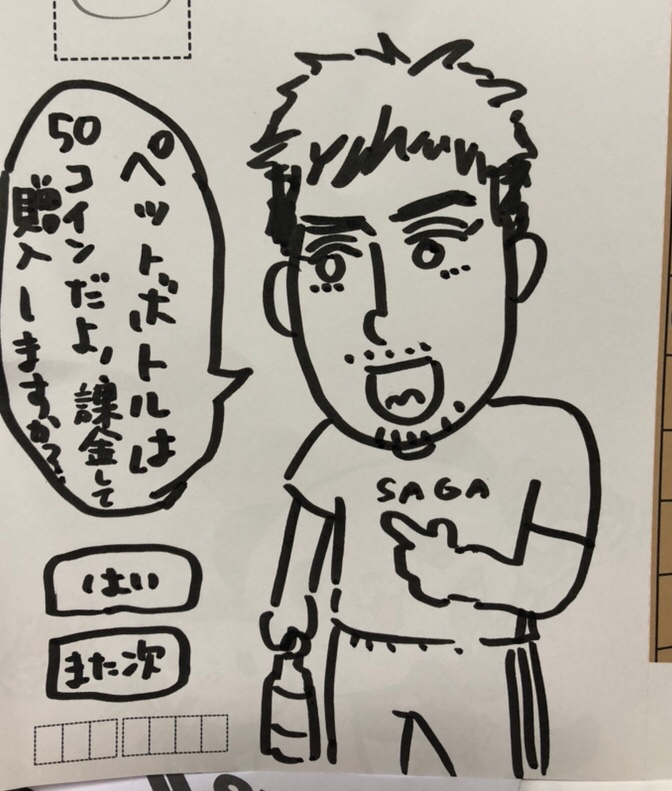 ペットボトルは
50コインだよ!課金して
購入しますか?
SAGA
はい
また次